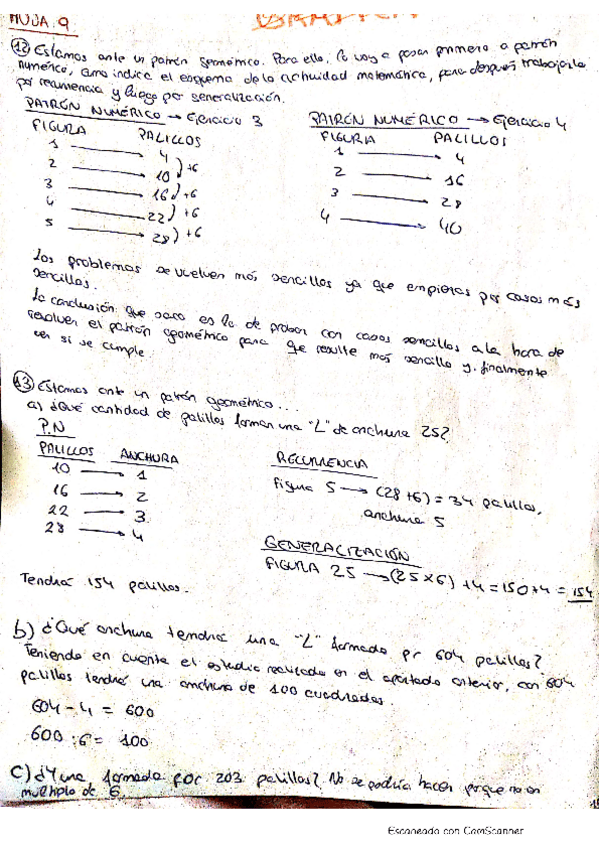 HOJA 9
12 Estamos ante un patrón geométrico. Para ello, lo voy a pasar primero a patrón
numérico, como indica el esquema de la actividad matemática, para después trabajarlo
por recurrencia y luego por generalización.
PATRÓN NUMÉRICO → Ejercicio 3
FIGURA PALILLOS
1 → 4
2 → 10 ) +6
3 → 16 ) +6
4 → 22 ) +6
5 → 28 ) +6
PATRÓN NUMÉRICO → Ejercicio 4
FIGURA PALILLOS
1 → 4
2 → 16
3 → 28
4 → 40
Los problemas se vuelven más sencillos ya que empiezas por casos más
sencillos.
La conclusión que saco es la de probar con casos sencillos a la hora de
resolver el patrón geométrico para que resulte más sencillo y, finalmente
ver si se cumple.
13 Estamos ante un patrón geométrico...
a) ¿Qué cantidad de palillos forman una "L" de anchura 25?
P.N
PALILLOS ANCHURA
10 → 1
16 → 2
22 → 3.
28 → 4
RECURRENCIA
Figura 5 → (28+6) = 34 palillos,
anchura 5
GENERACIZACIÓN
FIGURA 25 → (25×6) +4 = 150+4 = 154
Tendrá 154 palillos.
b) ¿Qué anchura tendrá una "L" formada pr 604 palillos?
Teniendo en cuenta el estudio realizado en el apartado anterior, con 604
palillos tendrá una anchura de 100 cuadrados.
604 - 4 = 600
600 : 6 = 100
C) ¿Y una, formada por 203 palillos? No se podría hacer porque no es
multiplo de 6.
Escaneado con CamScanner